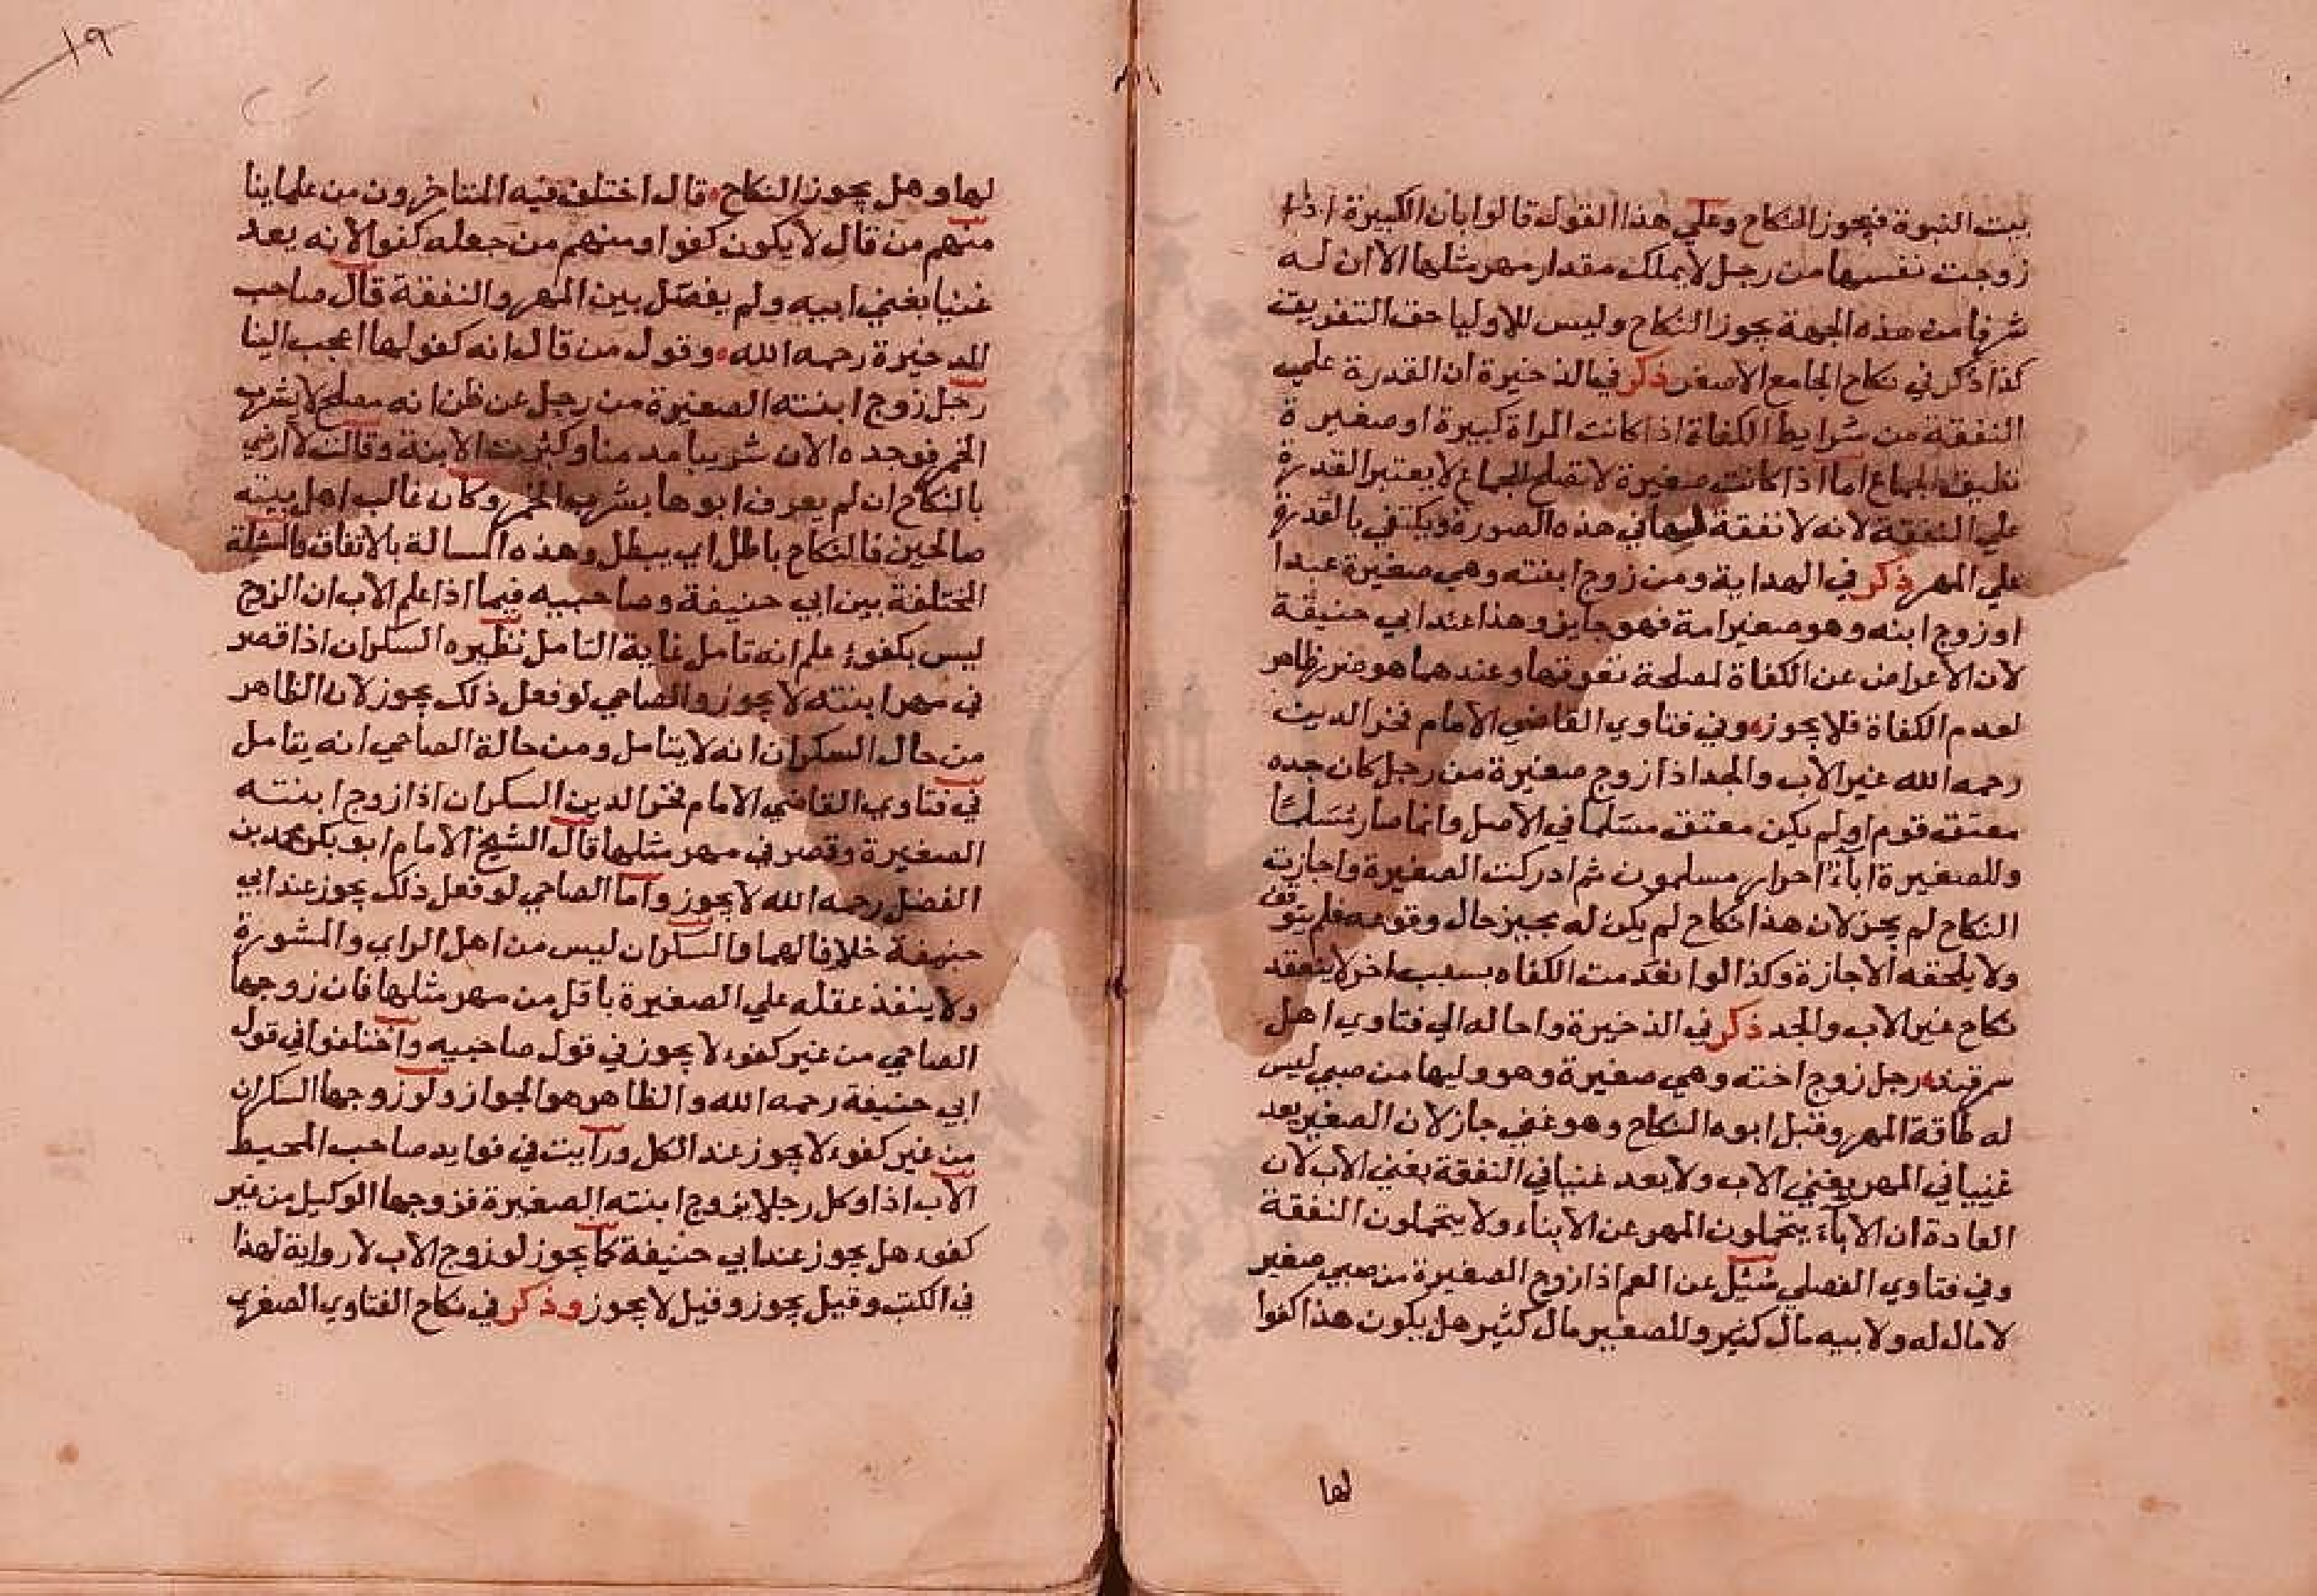 بيت النبوة فيجوز النكاح وعلي هذا القول قالوا بان الكبيرة اذا
زوجت نفسها من رجل لا يملك مقدار مهر مثلها الا ان له
شرفا من هذه الجهة يجوز النكاح وليس للاوليا حق التفريق
كذا ذكر في نكاح الجامع الاصغر ذكر في الذخيرة ان القدرة علي
النفقة من شرايط الكفاة اذا كانت المراة كبيرة او صغيرة
تطيق الجماع اما اذا كانت صغيرة لا تصلح للجماع لا يعتبر القدرة
علي النفقة لانه لا نفقة لها في هذه الصورة ويكتفي بالقدرة
علي المهر ذكر في الهداية ومن زوج ابنته وهي صغيرة عبدا
او زوج ابنه وهو صغير امة فهو جايز وهذا عند ابي حنيفة
لان الاعراض عن الكفاة لمصلحة تفوقها وعندهما هو ضرر ظاهر
لعدم الكفاة فلا يجوز وفي فتاوي القاضي الامام فخر الدين
رحمه الله غير الاب والجد اذا زوج صغيرة من رجل كان جده
معتق قوم او لم يكن معتق مسلما في الاصل وانما صار مسلما
وللصغيرة اباء احرار مسلمون ثم ادركت الصغيرة واجازت
النكاح لم يجز لان هذا نكاح لم يكن له مجيز حال وقوعه فلم يتوقف
ولا يلحقه الاجازة وكذا لو انعدمت الكفاه بسبب اخر لا ينعقد
نكاح غير الاب والجد ذكر في الذخيرة واحاله الي فتاوي اهل
سمرقند رجل زوج اخته وهي صغيرة وهو وليها من صبي ليس
له طاقة المهر وقبل ابوه النكاح وهو غني جاز لان الصغير يعد
غنيا في المهر بغني الاب ولا يعد غنيا في النفقة بغني الاب لان
العادة ان الاباء يتحملون المهر عن الابناء ولا يتحملون النفقة
وفي فتاوي الفضلي سئل عن العم اذا زوج الصغيرة من صبي صغير
لا مال له ولابيه مال كثير وللصغير مال كثير هل يكون هذا كفوا
لها
١٩
لها وهل يجوز النكاح قال اختلف فيه المتاخرون من علماينا
منهم من قال لا يكون كفوا ومنهم من جعله كفوا لانه يعد
غنيا بغني ابيه ولم يفصل بين المهر والنفقة قال صاحب
الذخيرة رحمه الله وقول من قال انه كفو لها اعجب الينا
رجل زوج ابنته الصغيرة من رجل عن ظن انه مصلح لا يشرب
الخمر فوجده الان شريبا مدمنا وكبرت الابنة وقالت لا ارضي
بالنكاح ان لم يعرف ابوها بشرب الخمر وكان غالب اهل بيته
صالحين فالنكاح باطل اي يبطل وهذه المسالة بالاتفاق والمسئلة
المختلفة بين ابي حنيفة وصاحبيه فيما اذا علم الاب ان الزوج
ليس بكفوء علم انه تامل غاية التامل نظيره السكران اذا قصر
في مهر ابنته لا يجوز والصاحي لو فعل ذلك يجوز لان الظاهر
من حال السكران انه لا يتامل ومن حالة الصاحي انه يتامل
في فتاوي القاضي الامام فخر الدين السكران اذا زوج ابنته
الصغيرة وقصر في مهر مثلها قال الشيخ الامام ابو بكر محمد بن
الفضل رحمه الله لا يجوز واما الصاحي لو فعل ذلك يجوز عند ابي
حنيفة خلافا لهما فالسكران ليس من اهل الراي والمشورة
ولا ينفذ عقله علي الصغيرة باقل من مهر مثلها فان زوجها
الصاحي من غير كفوء لا يجوز في قول صاحبيه واختلفوا في قول
ابي حنيفة رحمه الله والظاهر هو الجواز ولو زوجها السكران
من غير كفوء لا يجوز عند الكل ورايت في فوايد صاحب المحيط
الاب اذا وكل رجلا بزوج ابنته الصغيرة فزوجها الوكيل من غير
كفوء هل يجوز عند ابي حنيفة كما يجوز لو زوج الاب لا رواية لهذا
في الكتب وقيل يجوز وقيل لا يجوز وذكر في نكاح الفتاوي الصغري